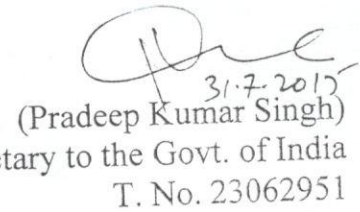 31.7.2015
(Pradeep Kumar Singh)
etary to the Govt. of India
T. No. 23062951